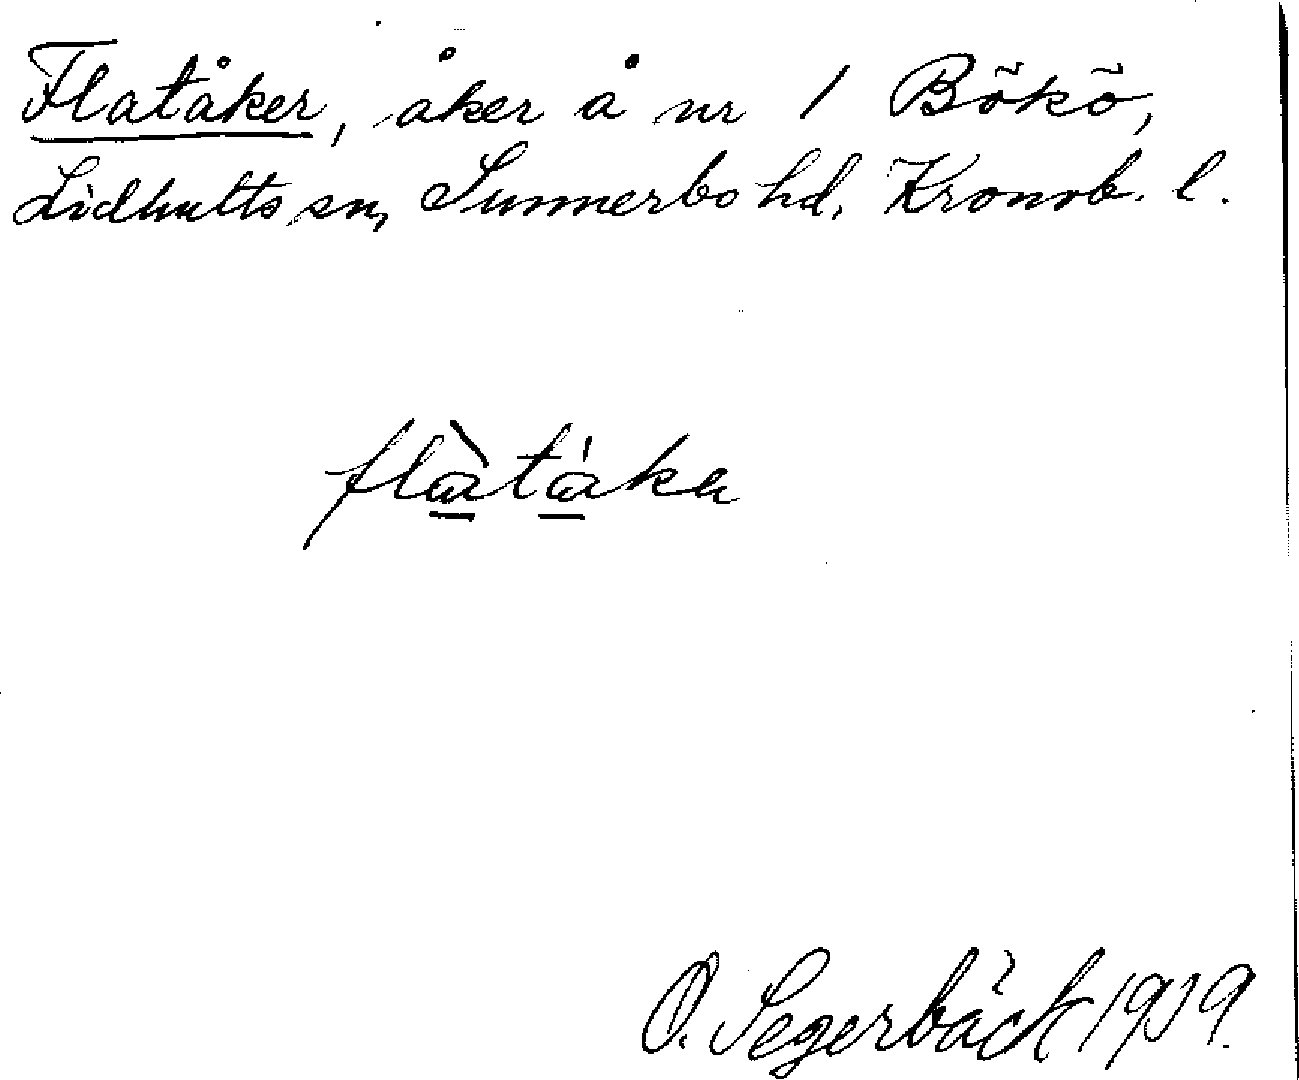 Flatåker, åker å nr 1 Bökö,
Lidhults sn, Sunnerbo hd, Kronob. l.
O. Segerbäck 1919.